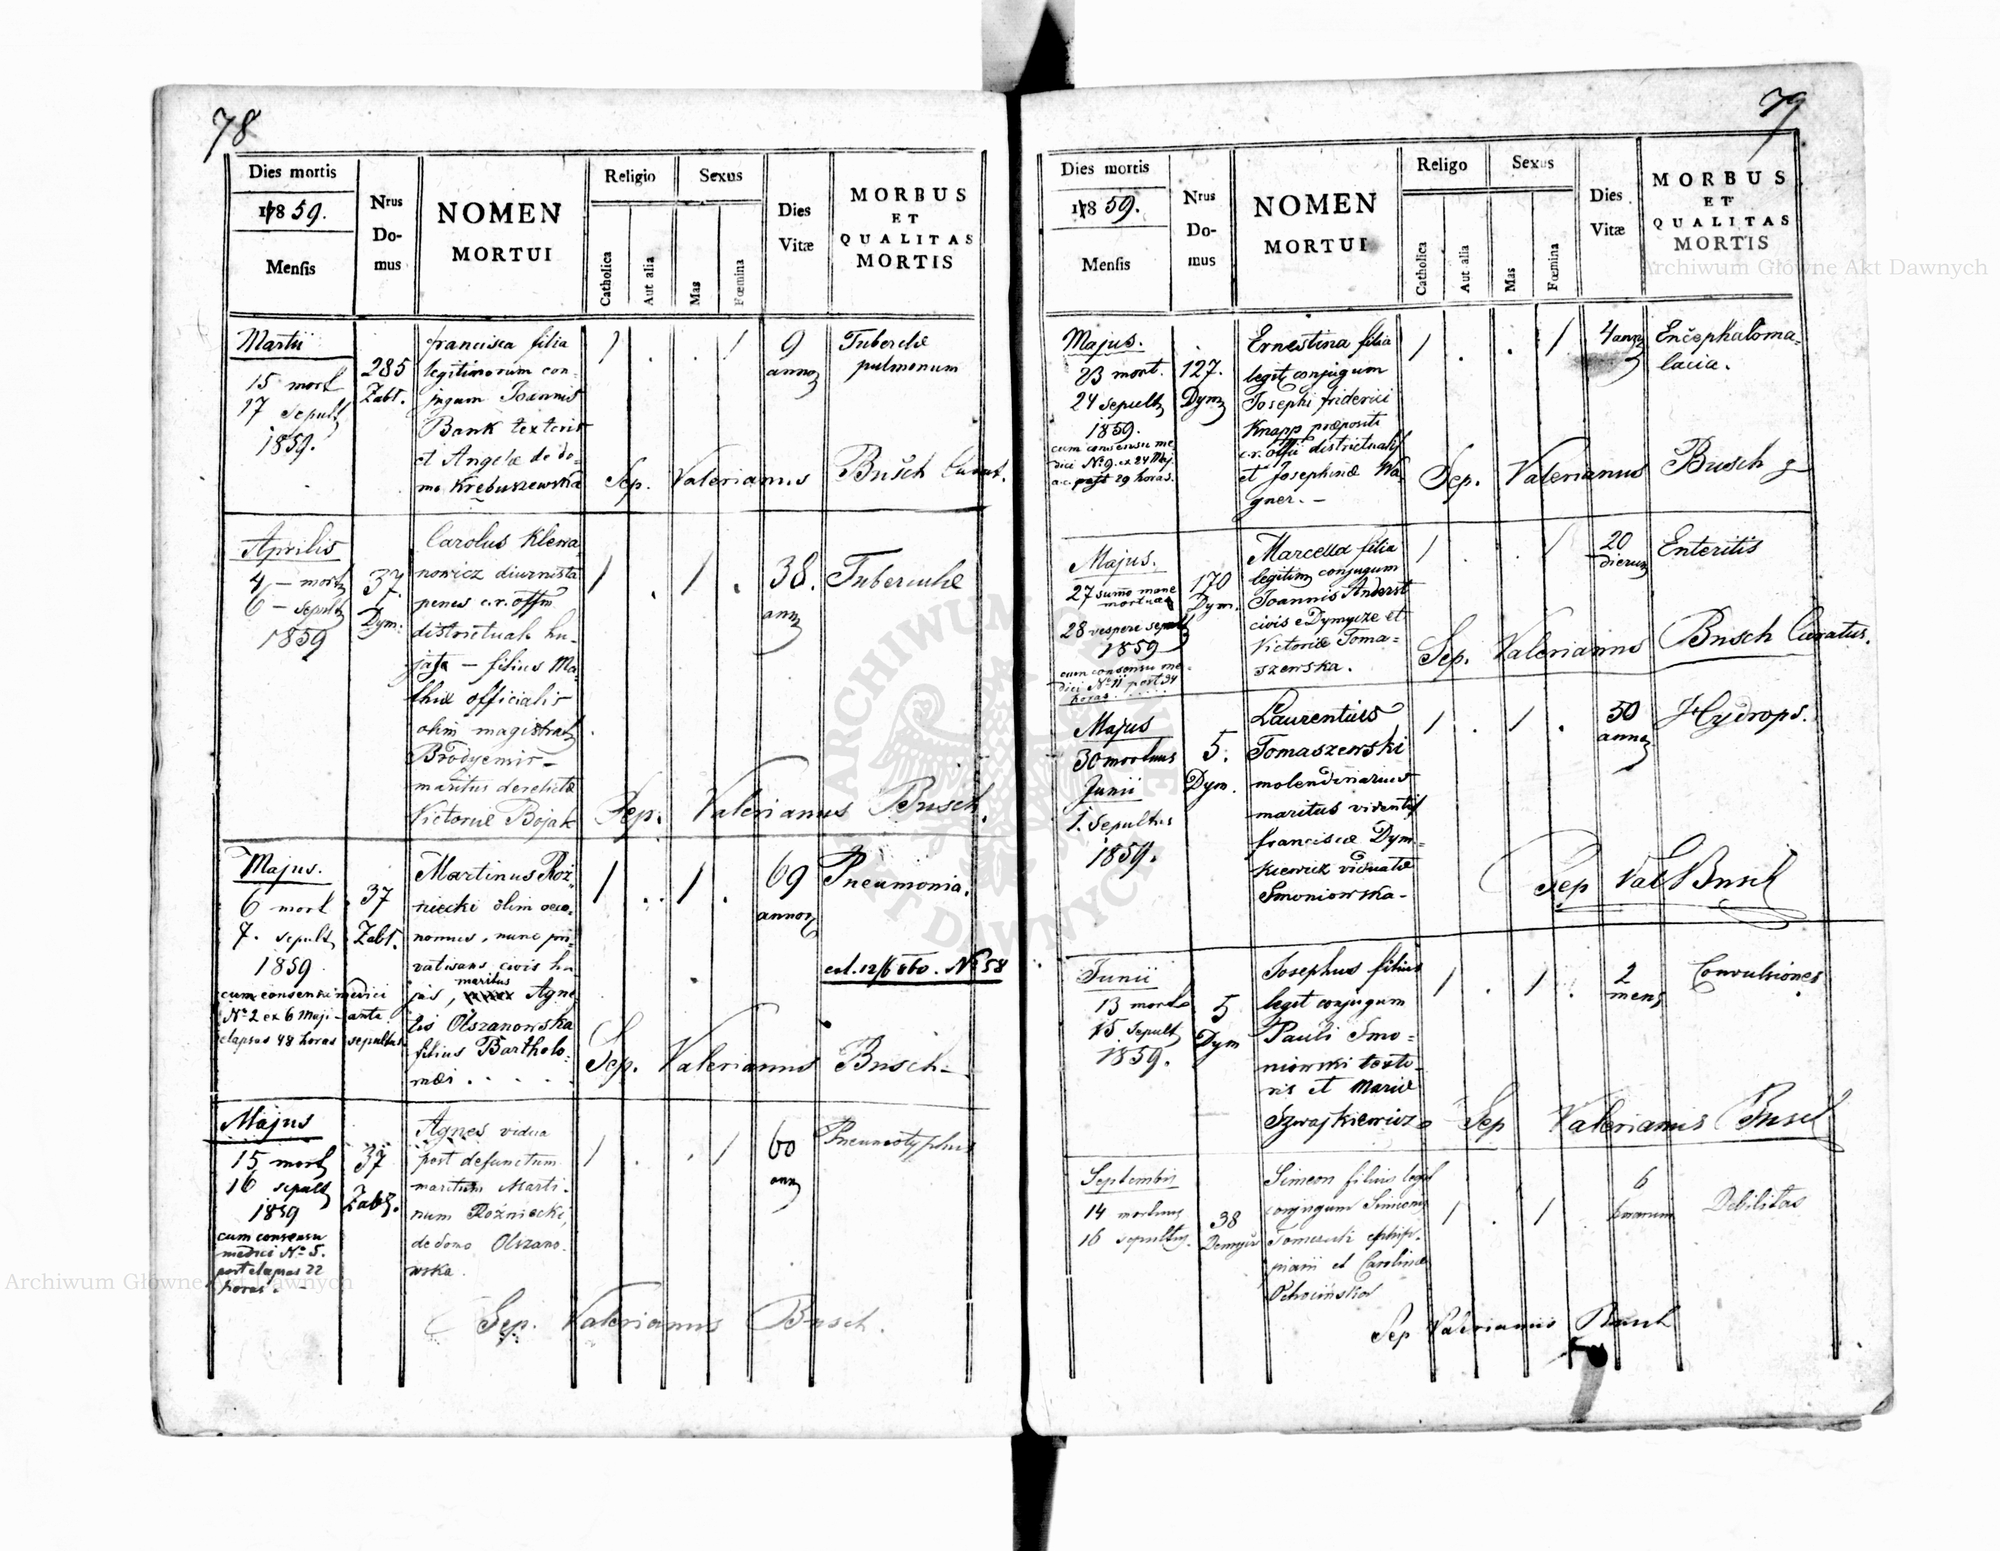 78
Dies mortis
1859.
Mensis
Nrus
Do-
mus
NOMEN
MORTUI
Religio
Catholica
Aut alia
Sexus
Mas
Fœmina
Dies
Vitæ
MORBUS
ET
QUALITAS
MORTIS
Martii
15 mort
17 sepult
1859.
285
Zabł.
francisca filia
legitimorum con-
jugum Joannis
Bank textoris
et Angelæ de do-
mo Krebuszewska
1 . . 1
9
annor
Tubercule
pulmonum
Sep. Valerianus Busch Curat.
Aprilis
4 - mort
6 - sepult
1859
37.
Dym.
Carolus Klewa
nowicz diurnista
penes c.r. offm
districtuale hu-
jate - filius Ma-
thiæ officialis
olim magistrat
Brodyensis -
maritus derelictæ
Victoriæ Bojak
1 . 1 .
38.
ann
Tuberculæ
Sep. Valerianus Busch.
Majus.
6 mort
7. sepult
1859
cum consensu medici
No 2 ex 6 Maji - ante
elapsas 48 horas sepultus
37
Zabł.
Martinus Roż-
niecki olim oeco-
nomus, nunc pri-
vatisans civis hu-
maritus
jus, Agne-
tis Olszanowska
filius Bartholo-
mæi . . . .
1 . 1 .
69
annor
Pneumonia.
ex. 12/6 860. No 58
Sep. Valerianus Busch-
Majus
15 mort
16 sepult
1859
cum consensu
medici No 5.
post elapsas 22
horas. -
37
Zabł.
Agnes vidua
post defunctum
maritum Marti-
num Rożniecki,
de domo Olszano-
wska.
1 . . 1
60
ann
Pneumotyphus
Sep. Valerianus Busch.
79
Dies mortis
1859.
Mensis
Nrus
Do-
mus
NOMEN
MORTUI
Religo
Catholica
Aut alia
Sexus
Mas
Fœmina
Dies
Vitæ
MORBUS
ET
QUALITAS
MORTIS
Majus.
23 mort.
24 sepult
1859.
cum consensu me
dici No 9. ex 24 Maj.
a.c. post 29 horas.
127.
Dym
Ernestina filia
legit conjugum
Josephi friderici
Knapp præpositi
c.r. offii districtualis
et Josephinæ Wa-
gner. -
1 . . 1
4 ann
Encephaloma-
lacia.
Sep. Valerianus Busch
Majus.
27 sumo mane
mortua
28 vespere sepult
1859
cum consensu me-
dici No 11 post 34
horas . . . . .
170
Dym.
Marcella filia
legitim conjugum
Joannis Anderst
civis e Dymycze et
Victoriæ Toma-
szewska.
1 . . 1
20
dierum
Enteritis
Sep. Valerianus Busch Curatus.
Majus
30 mortuus
Junii
1. Sepultus
1859.
5.
Dym.
Laurentius
Tomaszewski
molendinarius
maritus viventis
franciscæ Dym-
kiewicz viduatæ
Smoniowska-
1 . 1 .
50
annor
Hydrops.
Sep Val Busch
Junii
13 mort
15 Sepult
1859.
5
Dym
Josephus filius
legit conjugum
Pauli Smo-
niowski texto-
ris et Mariæ
Szwajkiewicz
1 . 1 .
2
mens
Convulsiones
Sep Valerianus Busch
Septembris
14 mortuus
16 sepultus.
38
Simeon filius legit
conjugum Simeonis
et Carolinæ
1 . 1
6
Debilitas
Sep Valerianus Busch
ARCHIWUM GŁÓWNE AKT DAWNYCH
Archiwum Główne Akt Dawnych
Archiwum Główne Akt Dawnych